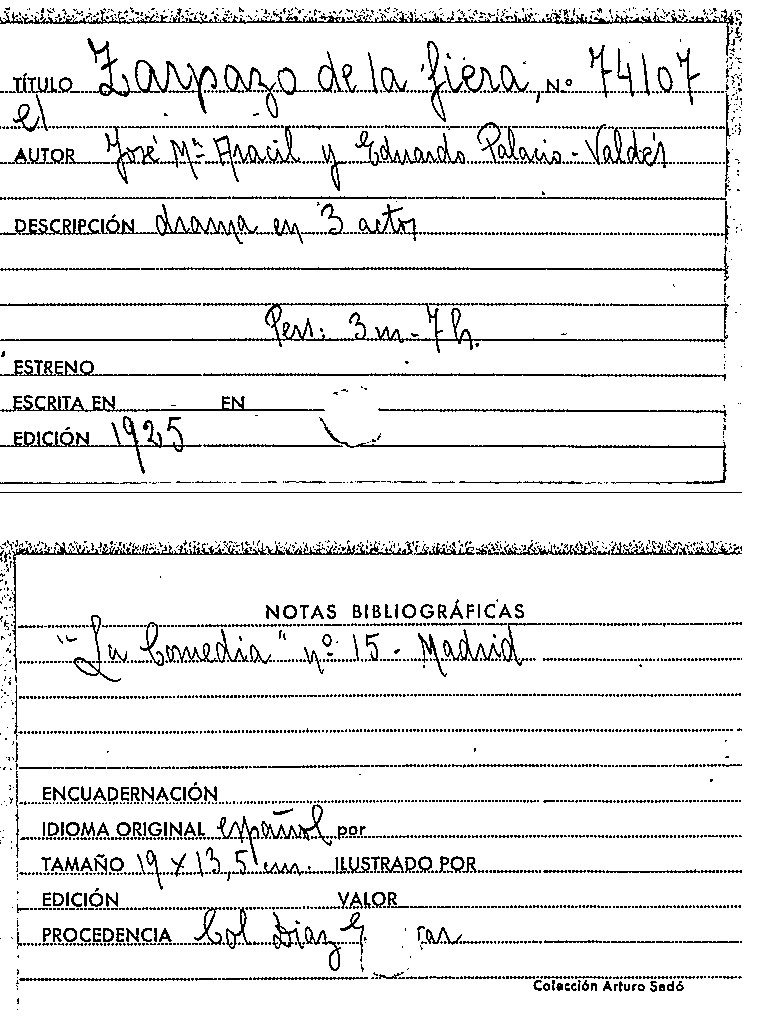 TÍTULO Zarpazo de la fiera, Nº 74107
el
AUTOR José Mª Aracil y Eduardo Palacio-Valdés
DESCRIPCIÓN drama en 3 actos
Pers: 3 m - 7 h.
ESTRENO
ESCRITA EN EN
EDICIÓN 1925
NOTAS BIBLIOGRÁFICAS
"La Comedia" nº 15 - Madrid
ENCUADERNACIÓN
IDIOMA ORIGINAL español por
TAMAÑO 19 x 13,5 cm. ILUSTRADO POR
EDICIÓN VALOR
PROCEDENCIA Col Diaz
Colección Arturo Sedó